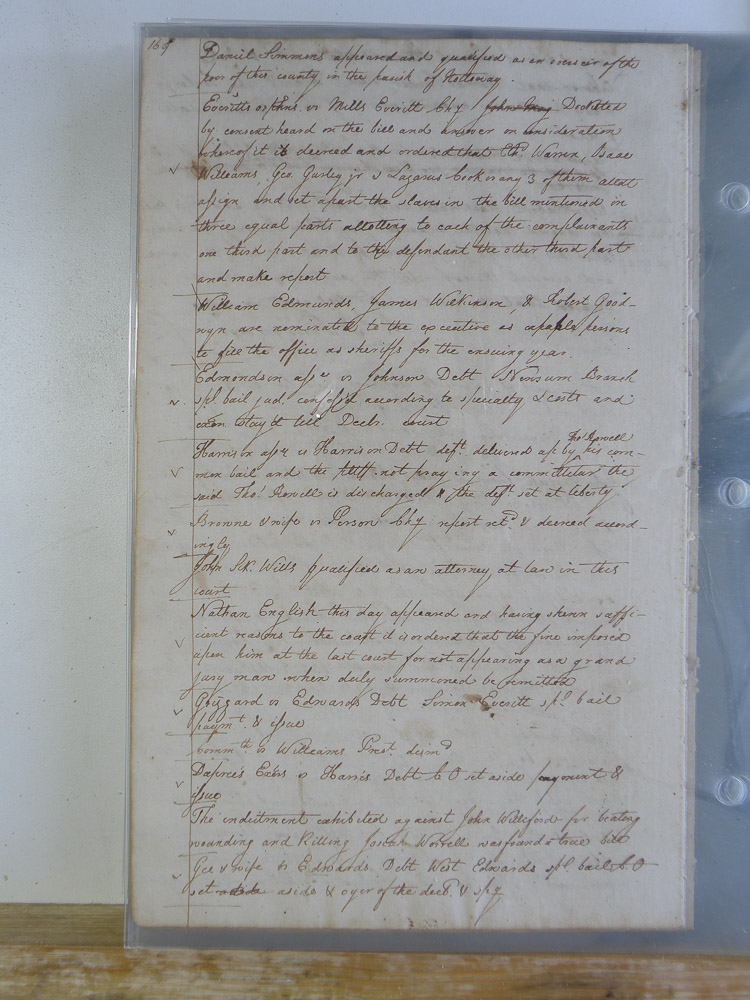 169
Daniel Simmons appeared and qualified as an overseer of the
poor of this county in the parish of Nottoway.
Everitts orphns. vs Mills Everitt Chy Docketed
by consent heard on the bill and answer on consideration
whereof it is decreed and ordered that Warren, Isaac
Williams, Geo. Gurley jr & Lazarus Cook or any 3 of them allot
assign and set apart the slaves in the bill mentioned in
three equal parts allotting to each of the complainants
one third part and to the defendant the other third part
and make report
William Edmunds, James Wilkinson, & Robert Good-
wyn are nominated to the executive as capable persons
to fill the office as sheriffs for the ensuing year.
Edmondson asse vs Johnson Debt Newsum Branch
spl bail jud. confess'd according to specialty & costs and
exon stay'd till Decbr. court
Harrison asse vs Harrison Debt deft. delivered up by Thos Rowell his com-
mon bail and the pltff. not praying a committitur the
said Thos Rowell is discharged & the deft set at liberty
Browne & wife vs Person Chy report retd. & decreed accord-
ingly
John Wills qualified as an attorney at law in this
court
Nathan English this day appeared and having shewn suffi-
cient reasons to the court it is ordered that the fine imposed
upon him at the last court for not appearing as a grand
jury man when duly summoned be remitted
Grizzard vs Edwards Debt Simon Everitt spl. bail
paymt. & issue
Commth vs Williams Prest. dismd
Dupree's Exors vs Harris Debt C O set aside payment &
issue
The indictment exhibited against John Williford for beating
wounding and killing Josiah Worrell was found a true bill
Gee & wife vs Edwards Debt West Edwards spl bail C O
set aside & oyer of the deed. & spy